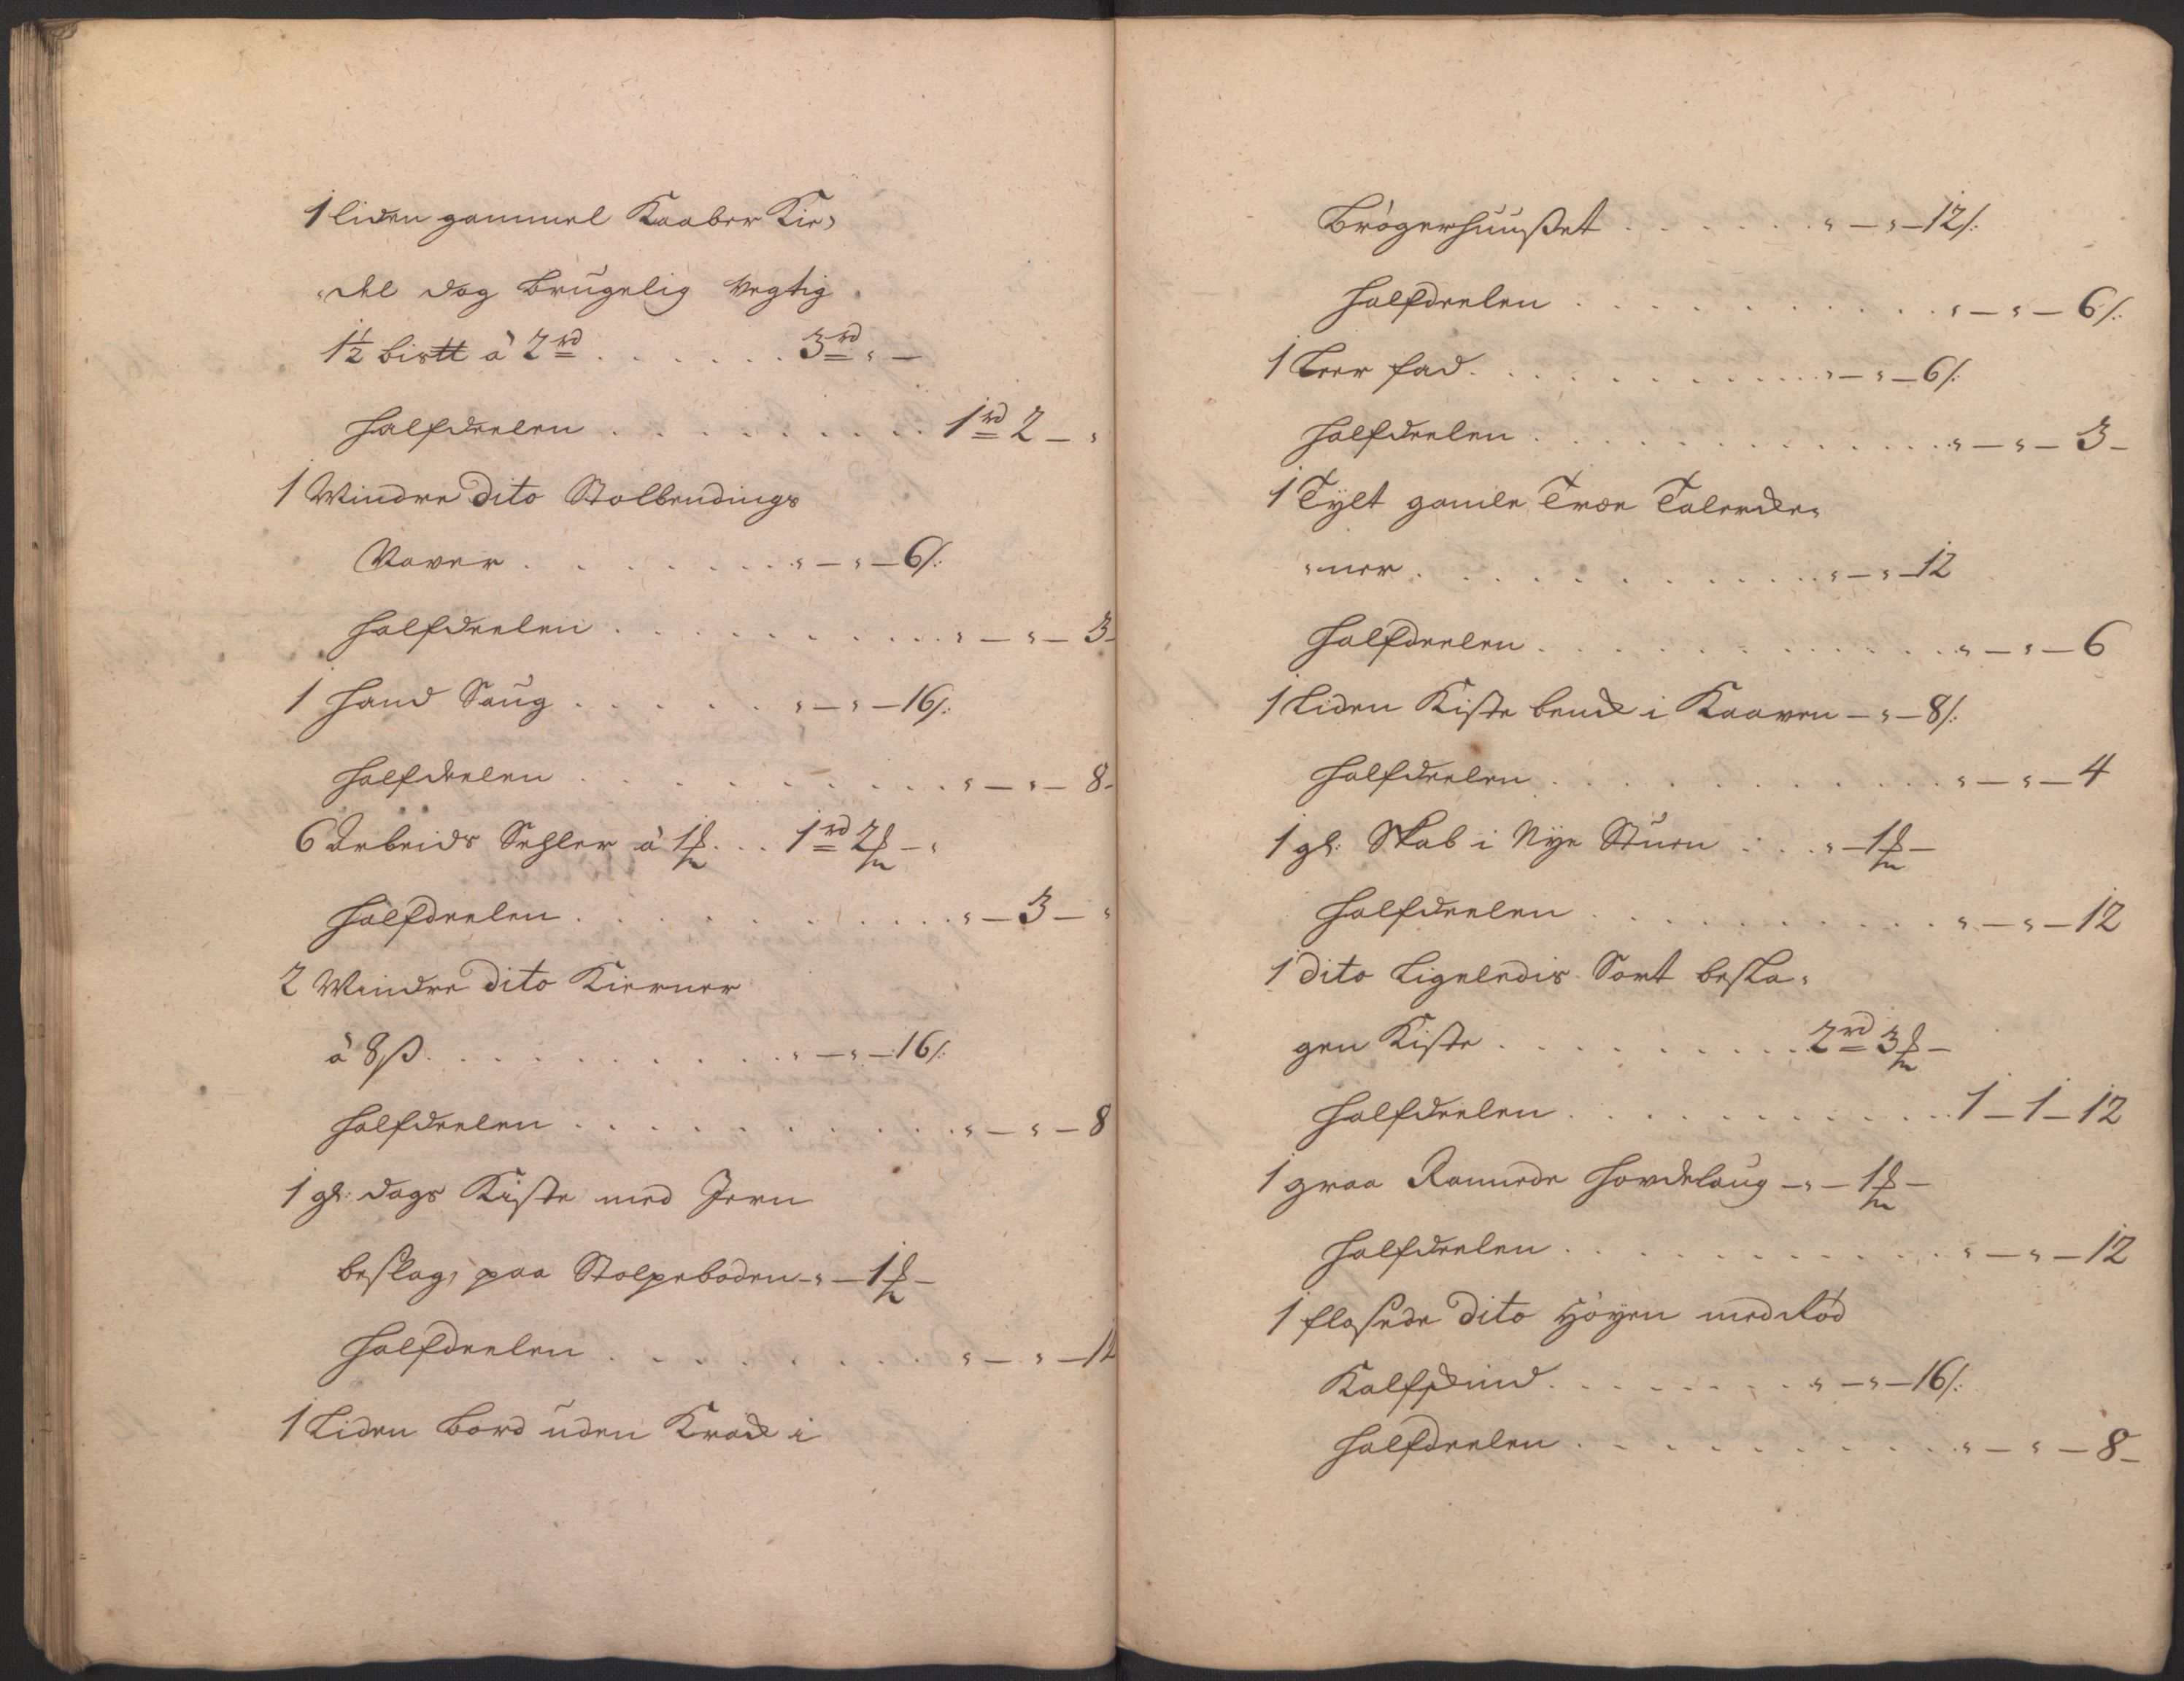 1 liden gammel Kaaber Kie,
„del dog brugelig vegtig
1½ bis℔ â 2 rd . . . . . . 3 rd „ —
Halfdeelen . . . . . . . . . . 1 rd 2 — „
1 Mindre Dito Stolbendings
Raver . . . . . . . . „ — „ — 6 /:
Halfdeelen . . . . . . . . . . . „ — „ — 3 -
1 Hand Saug . . . . . . „ — „ — 16 /:
Halfdeelen . . . . . . . . . . „ — „ — 8 -
6 Arbeids Sehler â 1 . . . 1 rd 2 — „
Halfdeelen . . . . . . . . . . . . „ — 3 — „
2 Mindre Dito Kierner
â 8 ß . . . . . . . . . . . „ — „ — 16 /:
Halfdeelen . . . . . . . . . . . „ — „ — 8
1 gl: dags Kiste med Jern
beslag, paa Stolpeboden - „ — 1 —
Halfdeelen . . . . . . . . . „ — „ — 12
1 Liden bord uden Krak i
Brögerhuußet . . . . . . . „ — „ — 12 /:
Halfdeelen . . . . . . . . . . . . „ — „ — 6 /:
1 Leer fad . . . . . . . . . . . . „ — „ — 6 /:
Halfdeelen . . . . . . . . . . . . . „ — „ — 3 -
1 Tylt gamle Træe Talerke„
„ner . . . . . . . . . . . . . „ — „ — 12
Halfdeelen . . . . . . . . . . . . . „ — „ — 6
1 Liden Kiste benk i Kaaven — „ — 8 /:
Halfdeelen . . . . . . . . . . . . „ — „ — 4
1 gl: Skab i Nye Stuen . . . „ — 1 —
Halfdeelen . . . . . . . . . . . „ — „ — 12
1 dito Ligeledis Sort besla„
gen Kiste . . . . . . . . . 2 rd 3 —
Halfdeelen . . . . . . . . . . . . 1 — 1 — 12
1 graa Ramede Hovdelaug — „ — 1 —
Halfdeelen . . . . . . . . . . . . „ — „ — 12
1 flosede Dito Höyen med Röd
Kalfskind . . . . . . . . „ — „ — 16 /:
Halfdeelen . . . . . . . . . . . „ — „ — 8 -